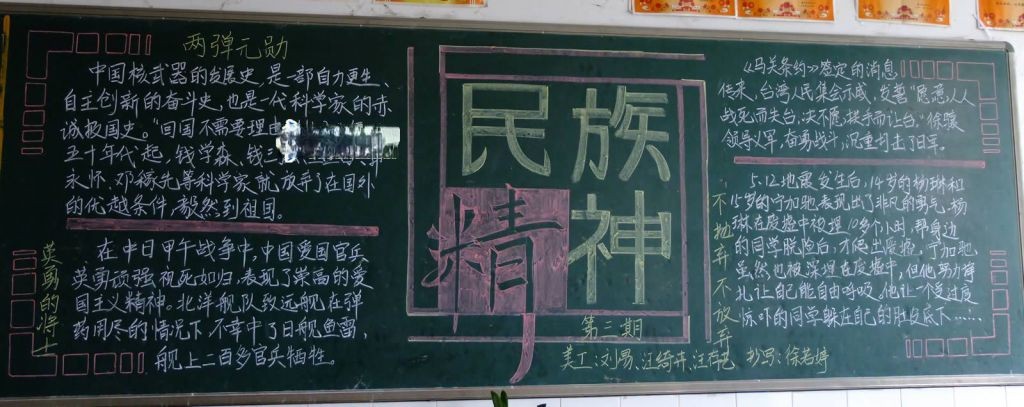 两弹元勋
中国核武器的发展史,是一部自力更生、
自主创新的奋斗史,也是一代科学家的赤
诚报国史。"回国不需要理由
五十年代起,钱学森、钱三
永怀、邓稼先等科学家就放弃了在国外
的优越条件,毅然到祖国。
英勇的将士
在中日甲午战争中,中国爱国官兵
英勇顽强视死如归,表现了崇高的爱
国主义精神。北洋舰队致远舰在弹
药用尽的情况下不幸中了日舰鱼雷,
舰上二百多官兵牺牲。
民族
精神
第三期
美工:刘易、汪绮卉、汪 书写:徐若婷
《马关条约》签定的消息
传来,台湾人民集会示威,发誓"愿人人
战死而失台,决不愿拱手而让台"徐骧
领导义军,奋勇战斗,沉重打击了日军。
不抛弃不放弃
5.12地震发生后,14岁的杨琳和
15岁的宁加驰表现出了非凡的勇气。杨
琳在废墟中被埋10多个小时,帮身边
的同学脱险后,才爬出废墟,宁加驰
虽然也被深埋在废墟中,但他努力挣
扎让自己能自由呼吸。他让一个受过度
惊吓的同学躲在自己的肚皮底下……